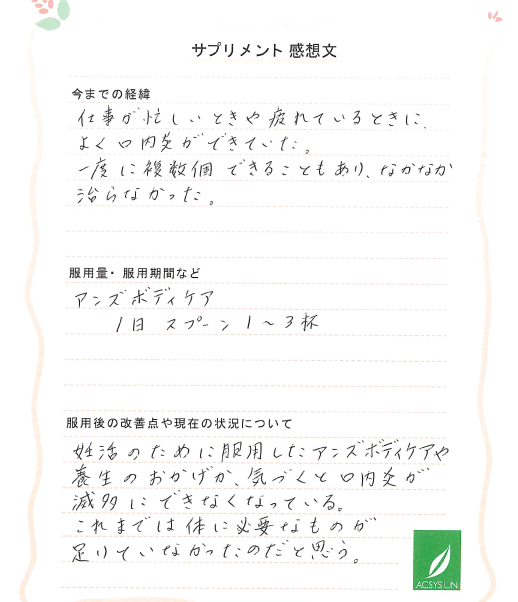 サプリメント 感想文
今までの経緯
仕事が忙しいときや疲れているときに、
よく口内炎ができていた。
一度に複数個できることもあり、なかなか
治らなかった。
服用量・服用期間など
アンズボディケア
1日 スプーン 1~3杯
服用後の改善点や現在の状況について
妊活のために服用したアンズボディケアや
養生のおかげか、気づくと口内炎が
滅多にできなくなっている。
これまでは体に必要なものが
足りていなかったのだと思う。
ACSYSUN